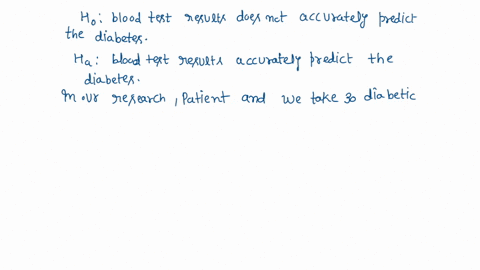 H₀: blood test results does not accurately predict
the diabetes.
Hₐ: blood test results accurately predict the
diabetes.
In our research, Patient and we take 30 diabetic